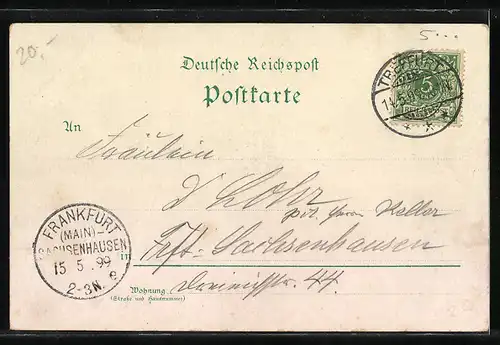 20.-
5...
Deutsche Reichspost
Postkarte
TREFFURT
14.5.99
5
An
Fräulein
D Lohr
bei Herrn Keller
Frkft. Sachsenhausen
FRANKFURT
(MAIN)-
SACHSENHAUSEN
15 5.99
2-3N. e
in
Wohnung
(Straße und Hausnummer)
Dreieichstr. 44.